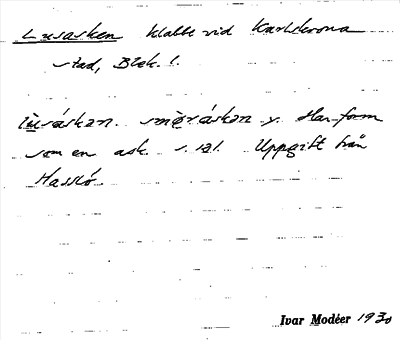 Lusasken klabb vid Karlskrona
stad, Blek. l.
lùsáskən. smø̀ráskən y. Har form
som en ask. Uppgift från
Hasslö.
Ivar Modéer 1930